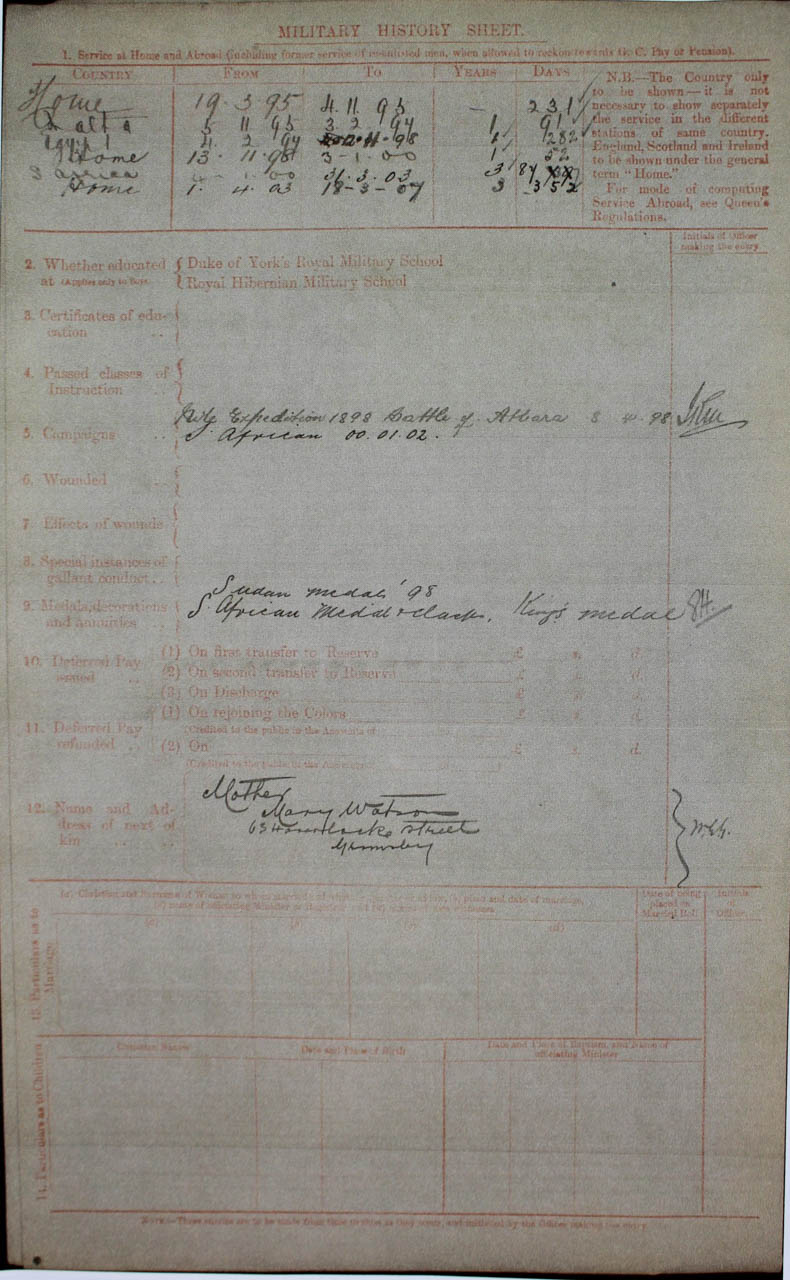 MILITARY HISTORY SHEET.
1. Service at Home and Abroad (including former service of re-enlisted men, when allowed to reckon towards G. C. Pay or Pension).
COUNTRY FROM TO YEARS DAYS
Home 19 3 95 4 11 95 — 231
Malta 5 11 95 3 2 97 1 91
Egypt 4 2 97 11 98 1 282
Home 13 11 98 3-1-00 1 52
S Africa 4-1-00 31.3.03 3 87
Home 1. 4. 03 18-3-07 3 352
N.B.—The Country only
to be shown—it is not
necessary to show separately
the service in the different
stations of same country.
England, Scotland and Ireland
to be shown under the general
term "Home."
For mode of computing
Service Abroad, see Queen's
Regulations.
Initials of Officer
making the entry.
2. Whether educated at (Applies only to Boys
Duke of York's Royal Military School
Royal Hibernian Military School
3. Certificates of education ..
4. Passed classes of Instruction ..
5. Campaigns ..
Expedition 1898 Battle of Atbara 8 4 98
S African 00.01.02.
6. Wounded ..
7. Effects of wounds
8. Special instances of gallant conduct ..
9. Medals, decorations and annuities ..
Sudan medal '98
S. African Medal & clasps. King's medal
10. Deferred Pay issued ..
(1) On first transfer to Reserve £ s. d.
(2) On second transfer to Reserve £ s. d.
(3) On Discharge £ s. d.
11. Deferred Pay refunded ..
(1) On rejoining the Colors £ s. d.
(Credited to the public in the Accounts of
(2) On £ s. d.
(Credited to the public in the Accounts
12. Name and Address of next of kin ..
Mother
Mary Watson
street
Grimsby
13. Particulars as to Marriage.
Date of being
placed on
Married Roll
Initials
of
Officer.
14. Particulars as to Children
Christian Names
Date and Place of Birth
Date and Place of Baptism, and Name of
officiating Minister
NOTE.—These entries are to be made from time to time as they occur, and initialled by the officer making the entry.